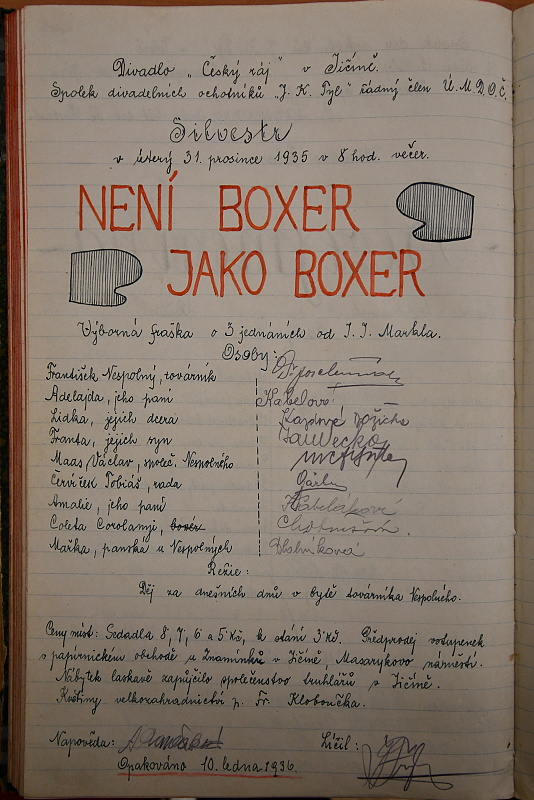 Divadlo „Český ráj" v Jičíně.
Spolek divadelních ochotníků „J. K. Tyl" řádný člen Ú. M. D. O. Č.
Silvestr
v úterý 31. prosince 1935 v 8 hod. večer.
NENÍ BOXER
JAKO BOXER
Výborná fraška o 3 jednáních od J. J. Markla.
Osoby:
František Nespolný, továrník
Adelajda, jeho paní Kábelová
Lidka, jejich dcera
Franta, jejich syn
Maas Václav, společ. Nespolného
Červíček Tobiáš, rada
Amalie, jeho paní
Coleta Corolanyi, boxér
Mařka, panská u Nespolných
Režie:
Děj za dnešních dnů v bytě továrníka Nespolného.
Ceny míst: Sedadla 8, 7, 6 a 5 Kč, k stání 3 Kč. Předprodej vstupenek
v papírnickém obchodě u Znamínků v Jičíně, Masarykovo náměstí.
Nábytek laskavě zapůjčilo společenstvo truhlářů v Jičíně.
Květiny velkozahradnictví p. Fr. Kloboučka.
Napověda: Líčil:
Opakováno 10. ledna 1936.